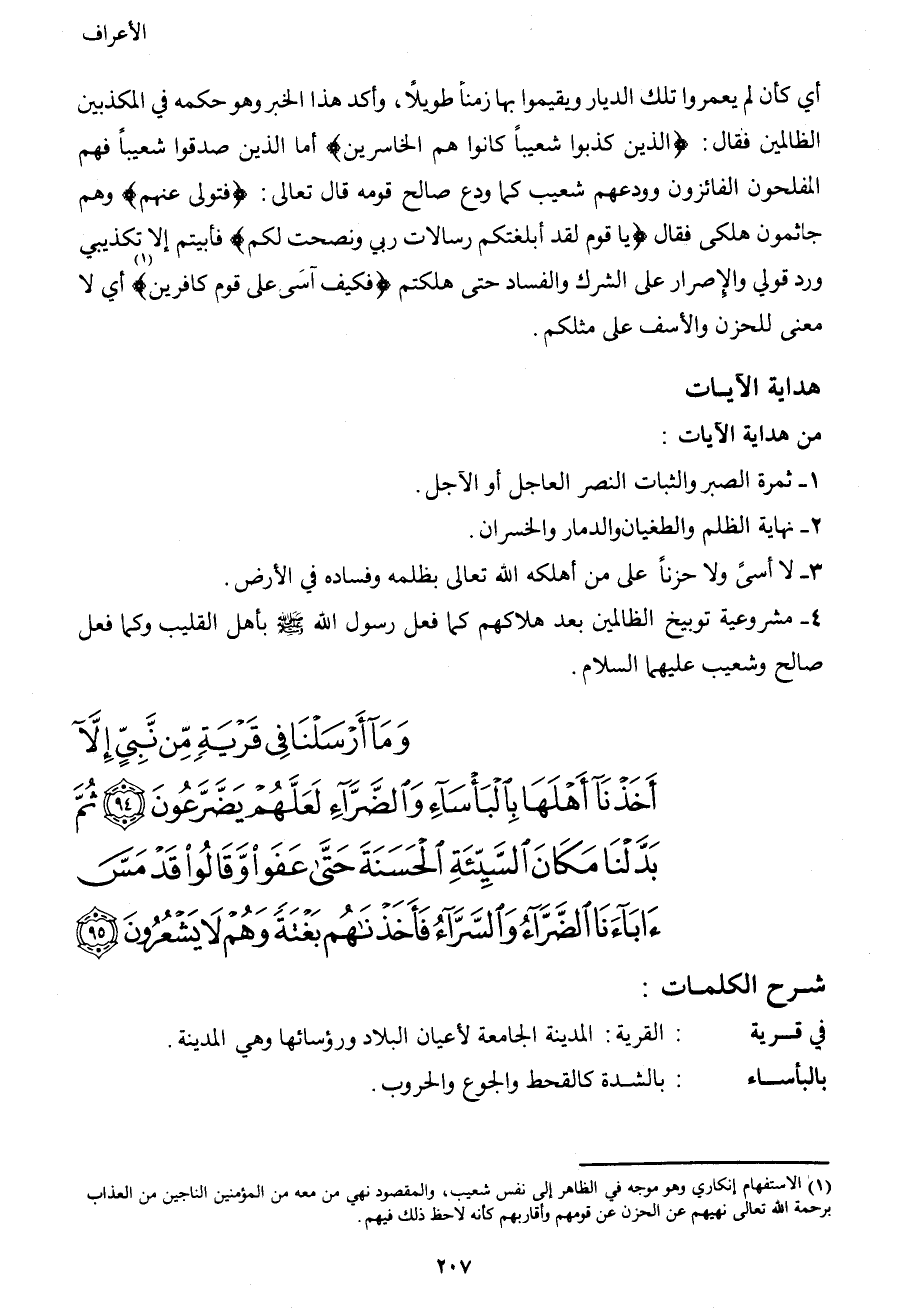 الأعراف
أي كأن لم يعمروا تلك الديار ويقيموا بها زمناً طويلًا، وأكد هذا الخبر وهو حكمه في المكذبين
الظالمين فقال: ﴿الذين كذبوا شعيباً كانوا هم الخاسرين﴾ أما الذين صدقوا شعيباً فهم
المفلحون الفائزون وودعهم شعيب كما ودع صالح قومه قال تعالى: ﴿فتولى عنهم﴾ وهم
جاثمون هلكى فقال ﴿يا قوم لقد أبلغتكم رسالات ربي ونصحت لكم﴾ فأبيتم إلا تكذيبي
ورد قولي والإِصرار على الشرك والفساد حتى هلكتم ﴿فكيف آسَى على قوم كافرين﴾(١) أي لا
معنى للحزن والأسف على مثلكم.
هداية الآيـات
من هداية الآيات:
١ـ ثمرة الصبر والثبات النصر العاجل أو الآجل.
٢ـ نهاية الظلم والطغيان والدمار والخسران.
٣ـ لا أسىً ولا حزناً على من أهلكه الله تعالى بظلمه وفساده في الأرض.
٤ـ مشروعية توبيخ الظالمين بعد هلاكهم كما فعل رسول الله ﷺ بأهل القليب وكما فعل
صالح وشعيب عليهما السلام.
وَمَآ أَرْسَلْنَا فِى قَرْيَةٍ مِّن نَّبِىٍّ إِلَّآ
أَخَذْنَآ أَهْلَهَا بِٱلْبَأْسَآءِ وَٱلضَّرَّآءِ لَعَلَّهُمْ يَضَّرَّعُونَ ٩٤ ثُمَّ
بَدَّلْنَا مَكَانَ ٱلسَّيِّئَةِ ٱلْحَسَنَةَ حَتَّىٰ عَفَوا۟ وَّقَالُوا۟ قَدْ مَسَّ
ءَابَآءَنَا ٱلضَّرَّآءُ وَٱلسَّرَّآءُ فَأَخَذْنَٰهُم بَغْتَةً وَهُمْ لَا يَشْعُرُونَ ٩٥
شـرح الكلمـات :
في قـــرية : القرية: المدينة الجامعة لأعيان البلاد ورؤسائها وهي المدينة.
بالبأســاء : بالشـدة كالقحط والجوع والحروب.
(١) الاستفهام إنكاري وهو موجه في الظاهر إلى نفس شعيب، والمقصود نهي من معه من المؤمنين الناجين من العذاب
برحمة الله تعالى نهيهم عن الحزن عن قومهم وأقاربهم كأنه لاحظ ذلك فيهم.
٢٠٧